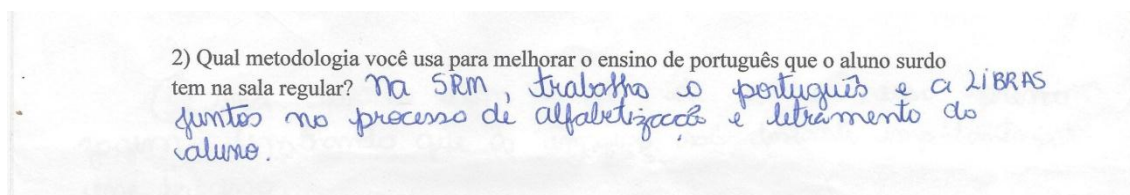 2) Qual metodologia você usa para melhorar o ensino de português que o aluno surdo
tem na sala regular? Na SRM, trabalho o português e a LIBRAS
juntos no processo de alfabetização e letramento do
aluno.